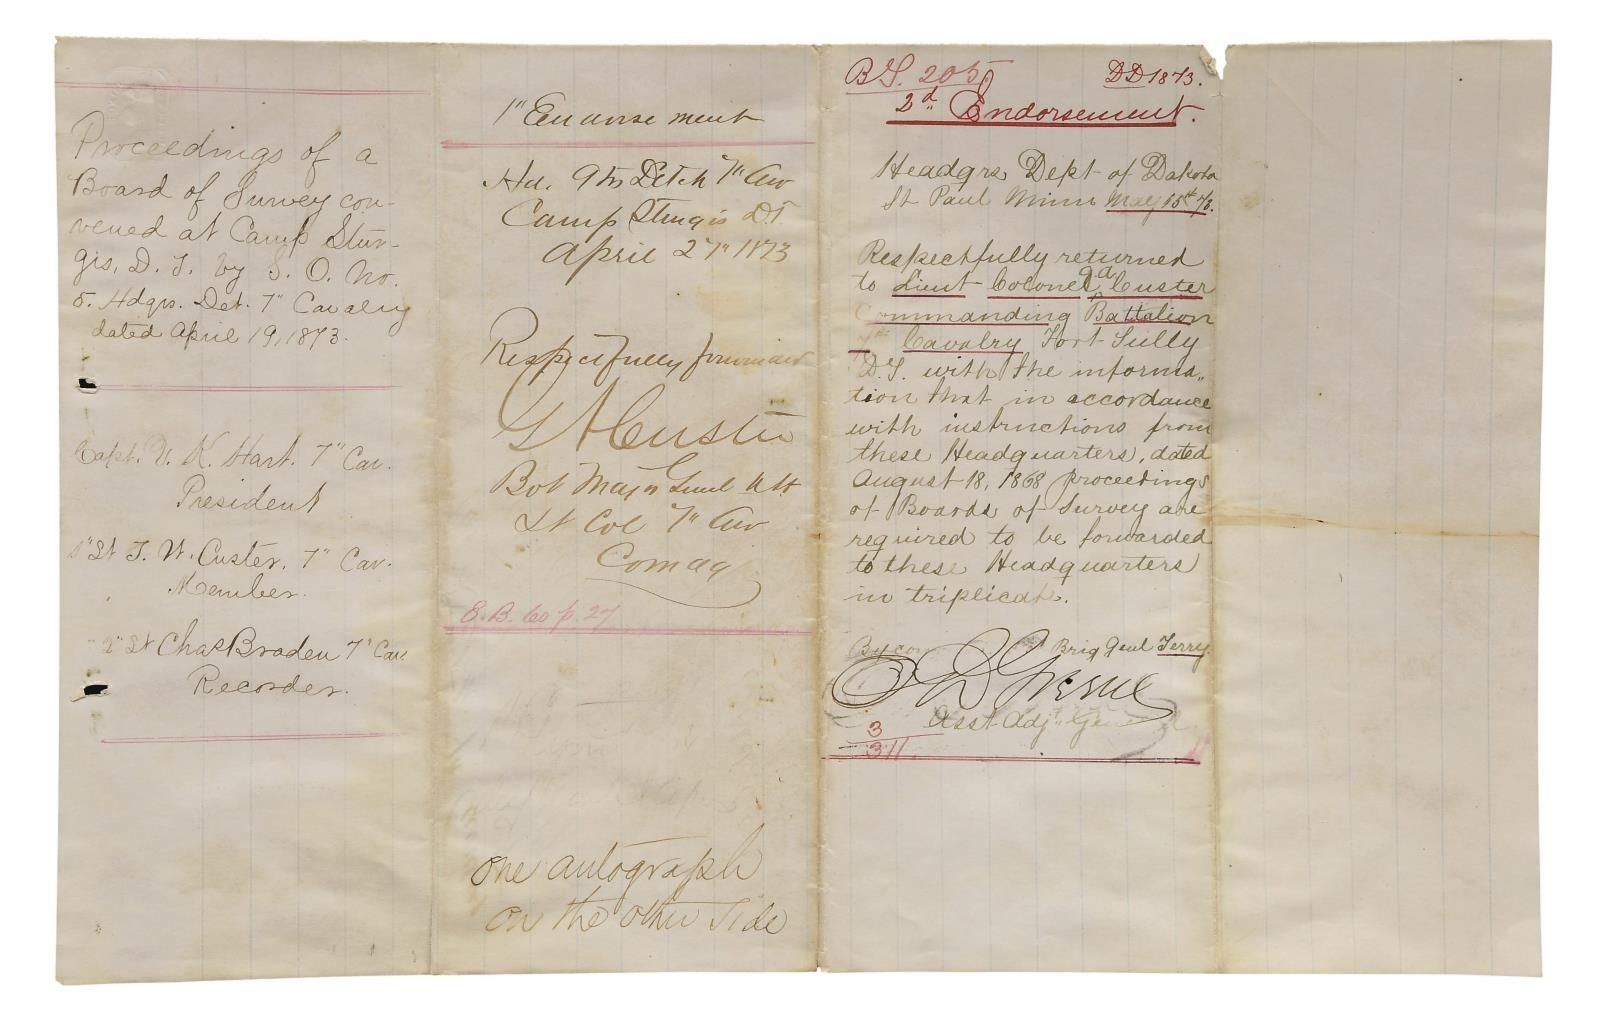 Proceedings of a
Board of Survey con-
vened at Camp Stur-
gis, D. T. by S. O. No.
5. Hdqrs. Det. 7" Cavalry
dated April 19, 1873.
Capt. V. K. Hart. 7" Cav.
President
1" Lt T. W. Custer. 7" Cav.
Member.
2" Lt Chas Braden 7" Cav.
Recorder.
1" Endorsement
Hd. Qrs Detch 7" Cav
Camp Sturgis D.T.
April 27" 1873
Respectfully forwarded
G A Custer
Bvt Major Genl U.S.A
Lt Col 7" Cav
Comdg
E.B. 60 p. 27
one autograph
on the other side
B S. 205 DD 1873.
2d Endorsement.
Headqrs Dept of Dakota
St Paul Minn May 15th 73.
Respectfully returned
to Lieut Colonel Custer
Commanding Battalion
7th Cavalry Fort Sully
D.T. with the informa„
tion that in accordance
with instructions from
these Headquarters, dated
August 18, 1868 proceedings
of Boards of Survey are
required to be forwarded
to these Headquarters
in triplicate.
By com Brig Genl Terry.
O D Greene
Asst Adjt General
3
311